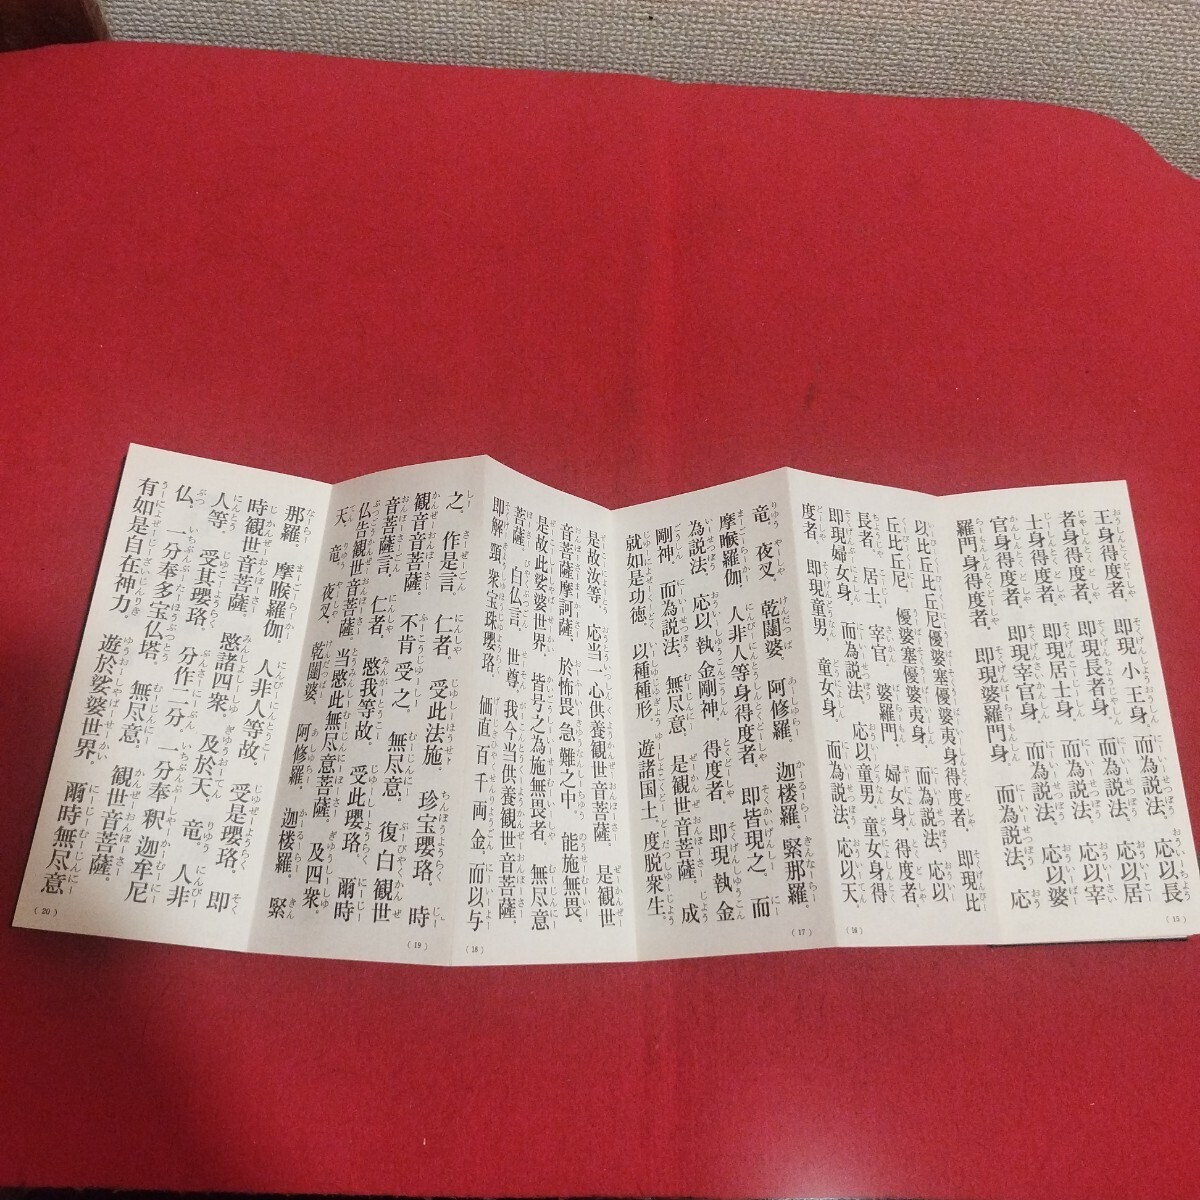 王身得度者。即現小王身。而為説法。応以長
者身得度者。即現長者身。而為説法。応以居
士身得度者。即現居士身。而為説法。応以宰
官身得度者。即現宰官身。而為説法。応以婆
羅門身得度者。即現婆羅門身。而為説法。応
(15)
以比丘比丘尼優婆塞優婆夷身得度者。即現比
丘比丘尼 優婆塞優婆夷身。而為説法。応以
長者。居士。宰官。婆羅門。婦女身。得度者。
即現婦女身。而為説法。応以童男。童女身得
度者。即現童男。童女身。而為説法。応以天。
(16)
竜。夜叉。乾闥婆。阿修羅。迦楼羅。緊那羅。
摩睺羅伽。人非人等身得度者。即皆現之。而
為説法。応以執金剛神。得度者。即現執金
剛神。而為説法。無尽意。是観世音菩薩。成
就如是功徳。以種種形。遊諸国土。度脱衆生。
(17)
是故汝等。応当一心供養観世音菩薩。是観世
音菩薩摩訶薩。於怖畏急難之中 能施無畏。
是故此娑婆世界。皆号之為施無畏者。無尽意
菩薩。白仏言。世尊。我今当供養観世音菩薩。
即解頸。衆宝珠瓔珞。価直百千両金。而以与
(18)
之。作是言。仁者。受此法施。珍宝瓔珞。時
観世音菩薩。不肯受之。無尽意。復白観世
音菩薩言。仁者。愍我等故。受此瓔珞。爾時
仏告観世音菩薩。当愍此無尽意菩薩。及四衆。
天。竜。夜叉。乾闥婆。阿修羅。迦楼羅。緊
(19)
那羅。摩睺羅伽。人非人等故。受是瓔珞。即
時観世音菩薩。愍諸四衆。及於天。竜。人非
人等。受其瓔珞。分作二分。一分奉釈迦牟尼
仏。一分奉多宝仏塔。無尽意。観世音菩薩。
有如是自在神力。遊於娑婆世界。爾時無尽意
(20)